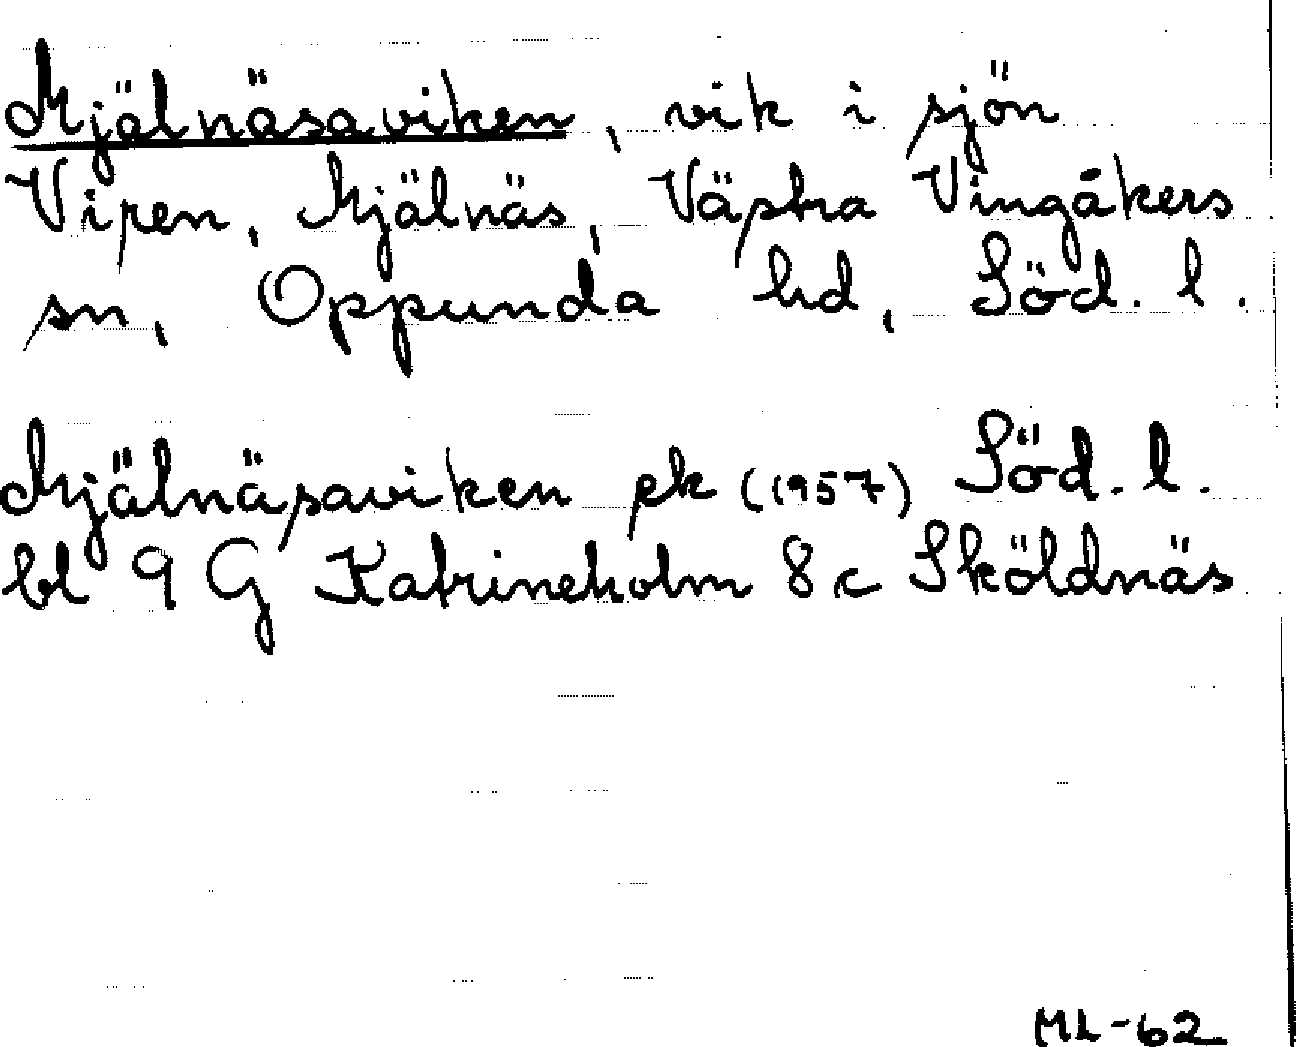 Mjälnäsaviken, vik i sjön
Viren, Mjälnäs, Västra Vingåkers
sn, Oppunda hd, Söd. l.
Mjälnäsaviken ek (1957) Söd. l.
bl 9 G Katrineholm 8 c Sköldnäs
ML-62